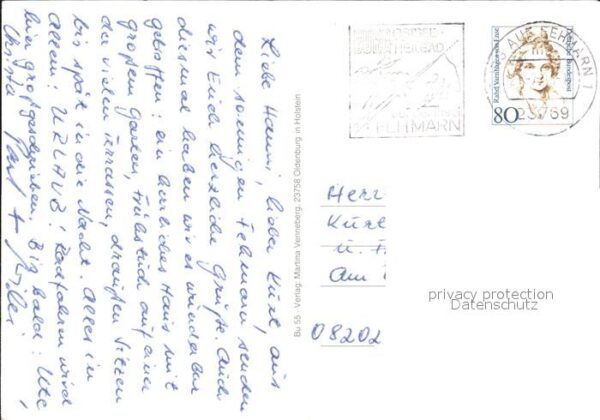 Liebe Hanni, lieber Kurt, aus
dem sonnigen Fehmarn senden
wir Euch herzliche Grüße. Auch
diesmal haben wir es wunderbar
getroffen: ein herrliches Haus mit
großem Garten, Frühstück auf einer
der vielen Terrassen, draußen sitzen
bis spät in die Nacht. Alles in
Allem: URLAUB! Radfahren wird
hier großgeschrieben. Big bald: Ute,
Christa
Bu 55 Verlag Martina Venneberg, 23758 Oldenburg in Holstein
OSTSEE
HEILBAD
FEHMARN
AUF FEHMARN 1
23769
Rahel Varnhagen von Ense
Deutsche Bundespost
80
Herr
Kurt
u.
Am
08202
privacy protection
Datenschutz